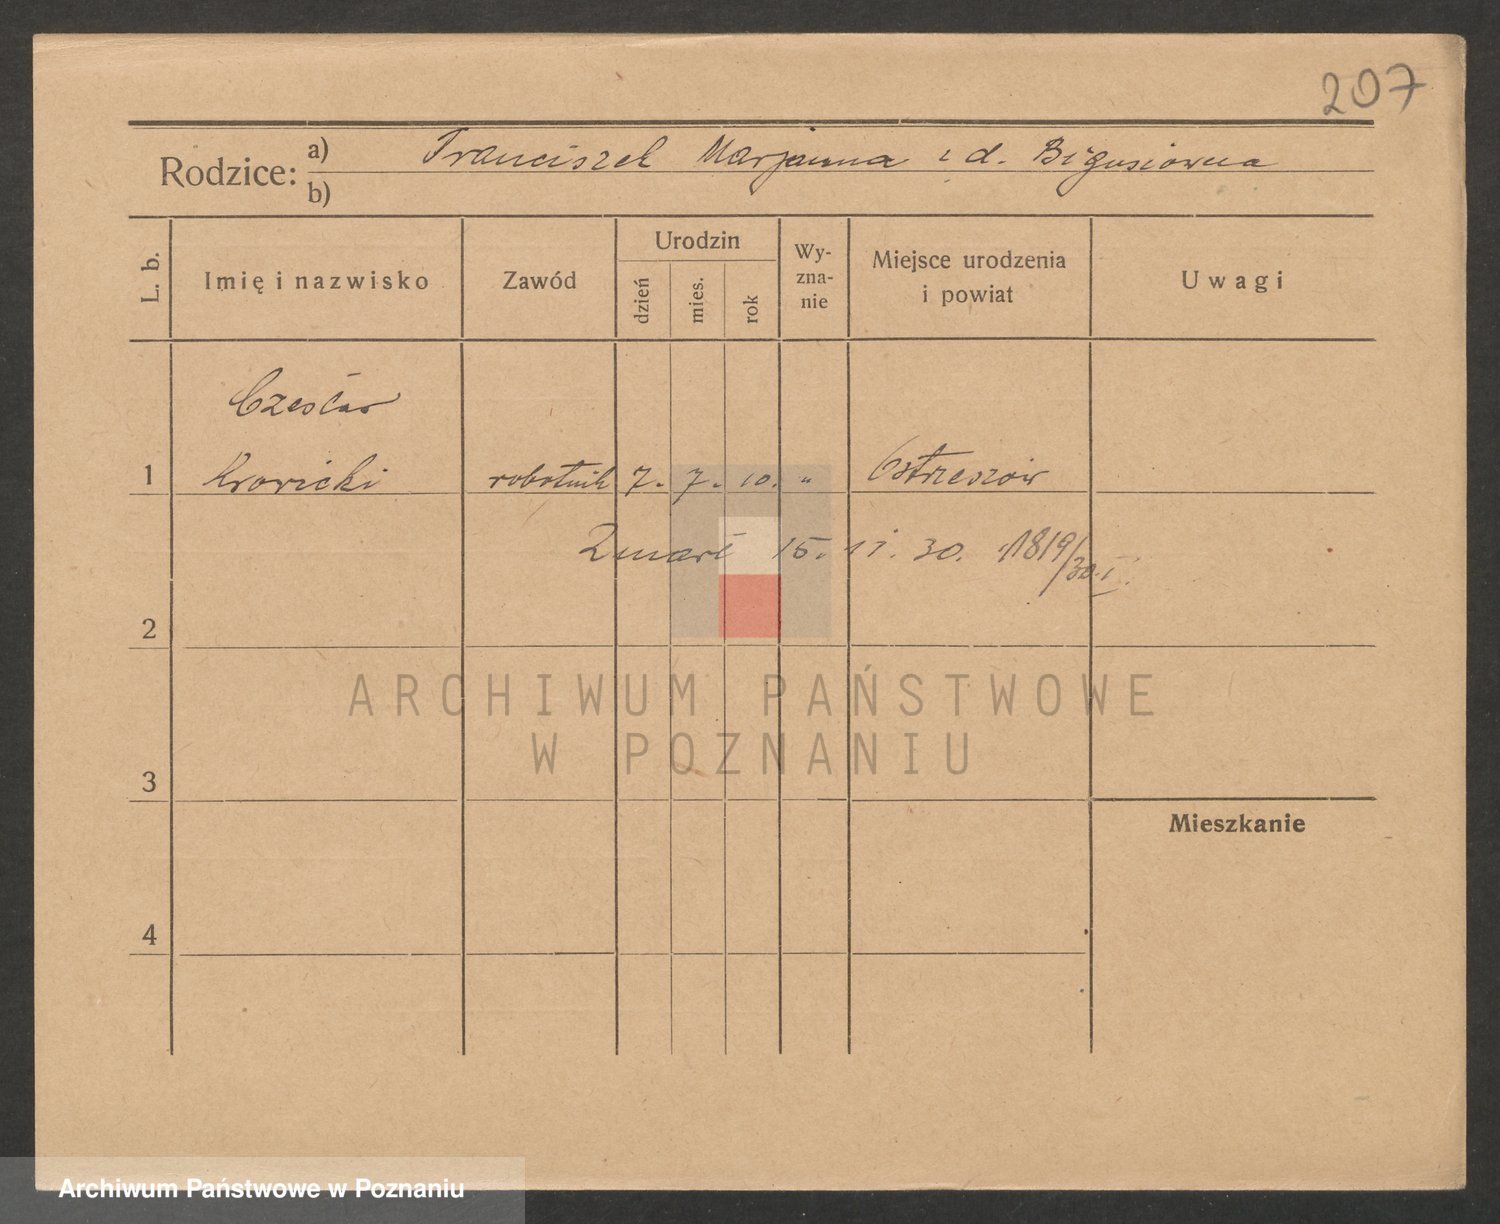 207
Rodzice: a) Franciszek Marjanna i d. Bigusiówna
b)
L. b. Imię i nazwisko Zawód Urodzin dzień mies. rok Wyznanie Miejsce urodzenia i powiat Uwagi
Czesław
1 robotnik 7. 7. 10. " Ostrzeszów
Zmarł 15. 11. 30. 1819/30.I.
2
ARCHIWUM PAŃSTWOWE
W POZNANIU
3
Mieszkanie
4
Archiwum Państwowe w Poznaniu